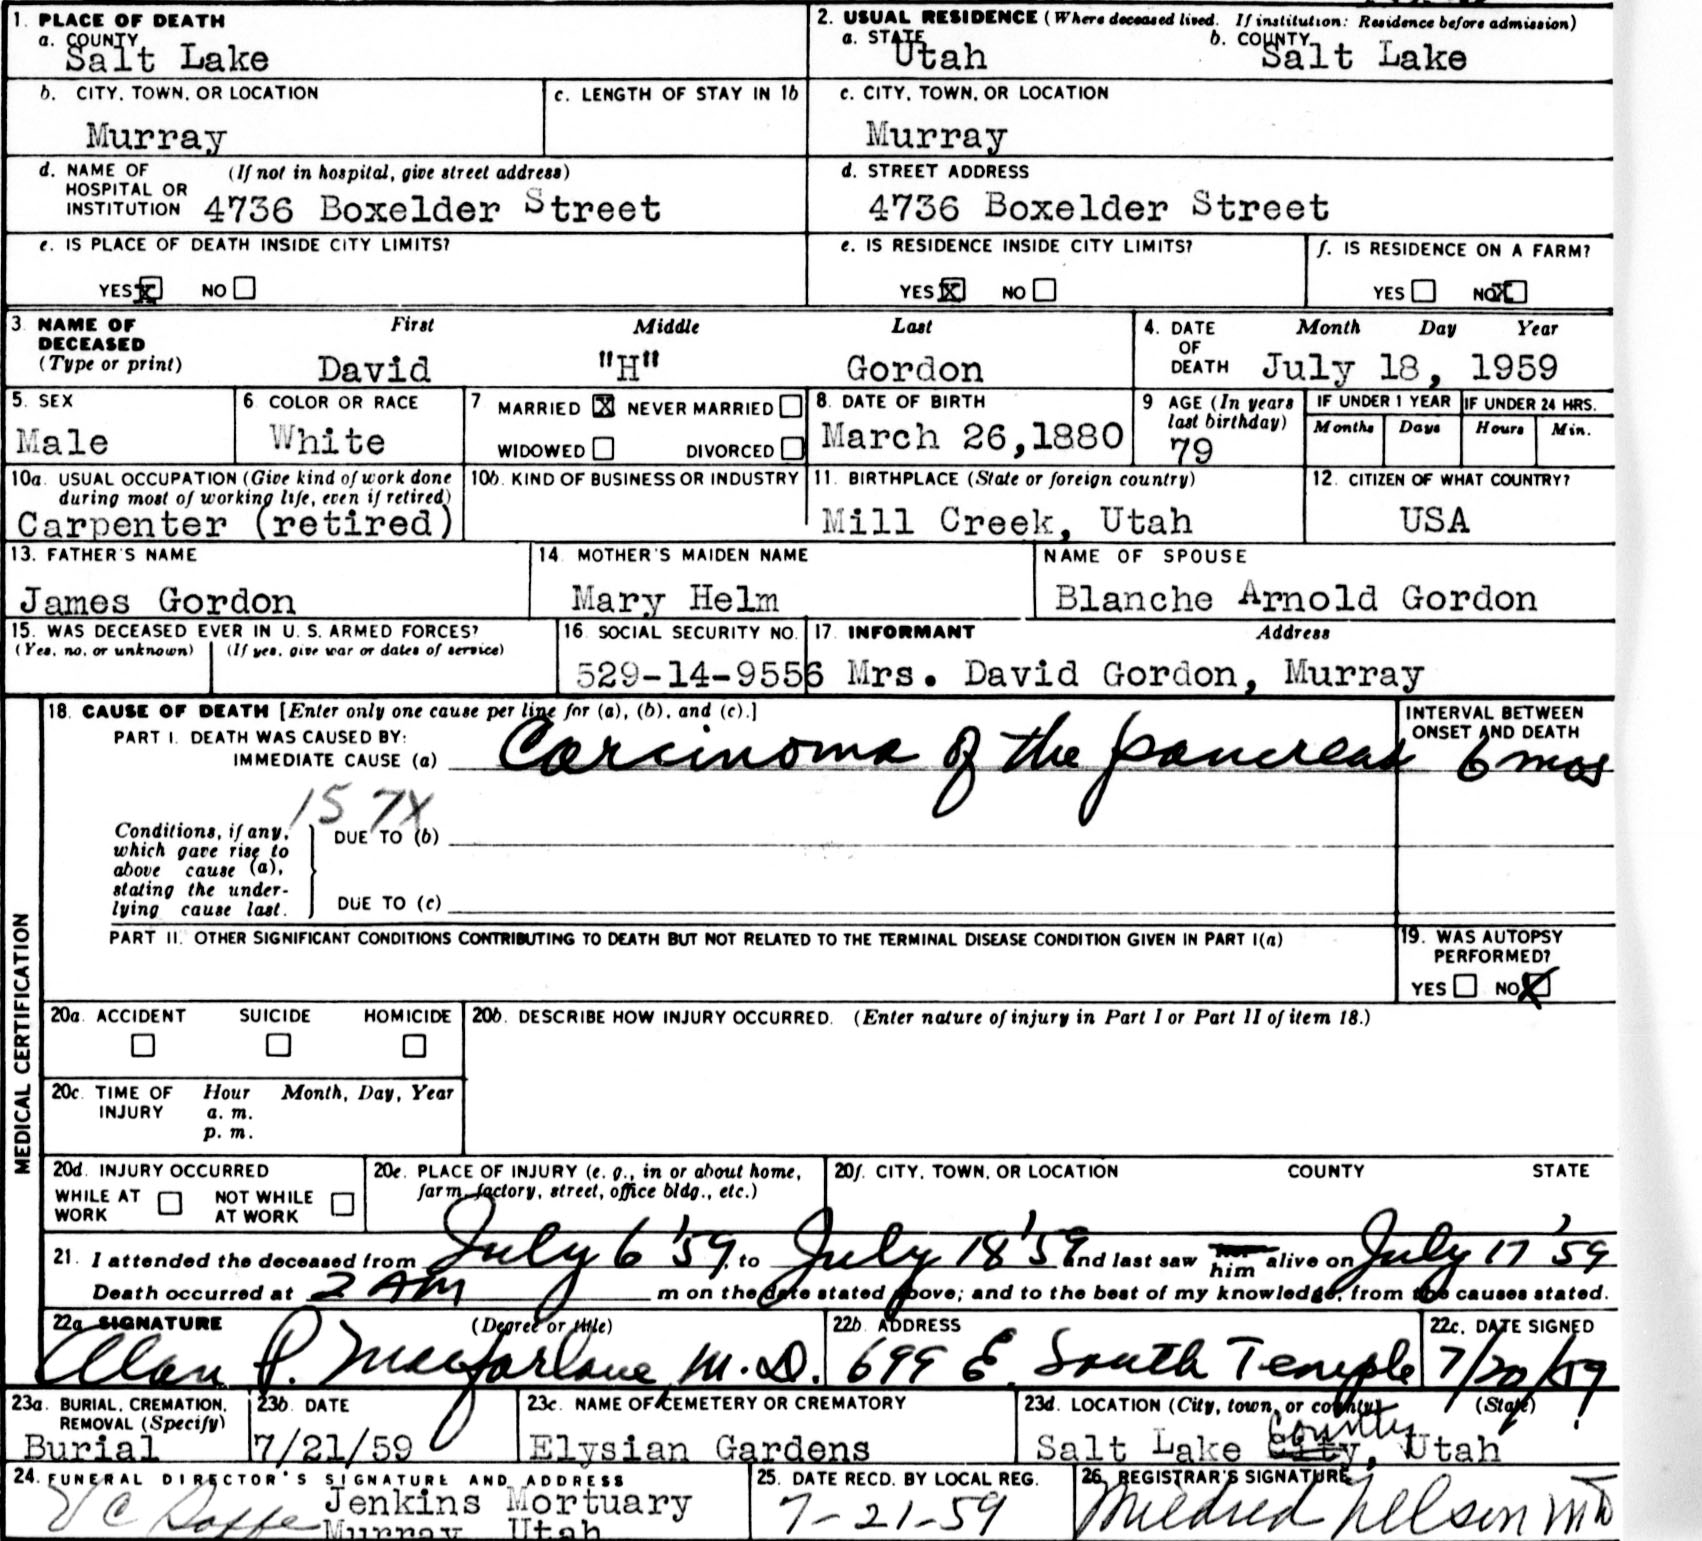 1. PLACE OF DEATH
a. COUNTY
Salt Lake
2. USUAL RESIDENCE (Where deceased lived. If institution: Residence before admission)
a. STATE b. COUNTY
Utah Salt Lake
b. CITY, TOWN, OR LOCATION
Murray
c. LENGTH OF STAY IN 1b
c. CITY, TOWN, OR LOCATION
Murray
d. NAME OF (If not in hospital, give street address)
HOSPITAL OR
INSTITUTION 4736 Boxelder Street
d. STREET ADDRESS
4736 Boxelder Street
e. IS PLACE OF DEATH INSIDE CITY LIMITS?
YES X NO
e. IS RESIDENCE INSIDE CITY LIMITS?
YES X NO
f. IS RESIDENCE ON A FARM?
YES NO X
3. NAME OF First Middle Last
DECEASED
(Type or print) David "H" Gordon
4. DATE Month Day Year
OF
DEATH July 18, 1959
5. SEX
Male
6. COLOR OR RACE
White
7 MARRIED X NEVER MARRIED
WIDOWED DIVORCED
8. DATE OF BIRTH
March 26,1880
9 AGE (In years
last birthday)
79
IF UNDER 1 YEAR
Months Days
IF UNDER 24 HRS.
Hours Min.
10a. USUAL OCCUPATION (Give kind of work done
during most of working life, even if retired)
Carpenter (retired)
10b. KIND OF BUSINESS OR INDUSTRY
11. BIRTHPLACE (State or foreign country)
Mill Creek, Utah
12. CITIZEN OF WHAT COUNTRY?
USA
13. FATHER'S NAME
James Gordon
14. MOTHER'S MAIDEN NAME
Mary Helm
NAME OF SPOUSE
Blanche Arnold Gordon
15. WAS DECEASED EVER IN U. S. ARMED FORCES?
(Yes, no, or unknown) (If yes, give war or dates of service)
16. SOCIAL SECURITY NO.
529-14-9556
17. INFORMANT Address
Mrs. David Gordon, Murray
MEDICAL CERTIFICATION
18. CAUSE OF DEATH [Enter only one cause per line for (a), (b), and (c).]
PART I. DEATH WAS CAUSED BY:
IMMEDIATE CAUSE (a) Carcinoma of the pancreas
INTERVAL BETWEEN
ONSET AND DEATH
6 mos
157X
Conditions, if any,
which gave rise to
above cause (a),
stating the under-
lying cause last.
DUE TO (b)
DUE TO (c)
PART II. OTHER SIGNIFICANT CONDITIONS CONTRIBUTING TO DEATH BUT NOT RELATED TO THE TERMINAL DISEASE CONDITION GIVEN IN PART I(a)
19. WAS AUTOPSY
PERFORMED?
YES NO X
20a. ACCIDENT SUICIDE HOMICIDE
20b. DESCRIBE HOW INJURY OCCURRED. (Enter nature of injury in Part I or Part II of item 18.)
20c. TIME OF Hour Month, Day, Year
INJURY a. m.
p. m.
20d. INJURY OCCURRED
WHILE AT NOT WHILE
WORK AT WORK
20e. PLACE OF INJURY (e. g., in or about home,
farm, factory, street, office bldg., etc.)
20f. CITY, TOWN, OR LOCATION COUNTY STATE
21. I attended the deceased from July 6 '59, to July 18 '59 and last saw him alive on July 17 '59
Death occurred at 2 AM m on the date stated above; and to the best of my knowledge, from the causes stated.
22a SIGNATURE (Degree or title)
Alan P. Macfarlane M.D.
22b. ADDRESS
699 E. South Temple
22c. DATE SIGNED
7/20/59
23a. BURIAL, CREMATION,
REMOVAL (Specify)
Burial
23b. DATE
7/21/59
23c. NAME OF CEMETERY OR CREMATORY
Elysian Gardens
23d. LOCATION (City, town, or county) (State)
County
Salt Lake City, Utah
24. FUNERAL DIRECTOR'S SIGNATURE AND ADDRESS
Jenkins Mortuary
Murray Utah
25. DATE RECD. BY LOCAL REG.
7-21-59
26. REGISTRAR'S SIGNATURE
Mildred Nelson MD